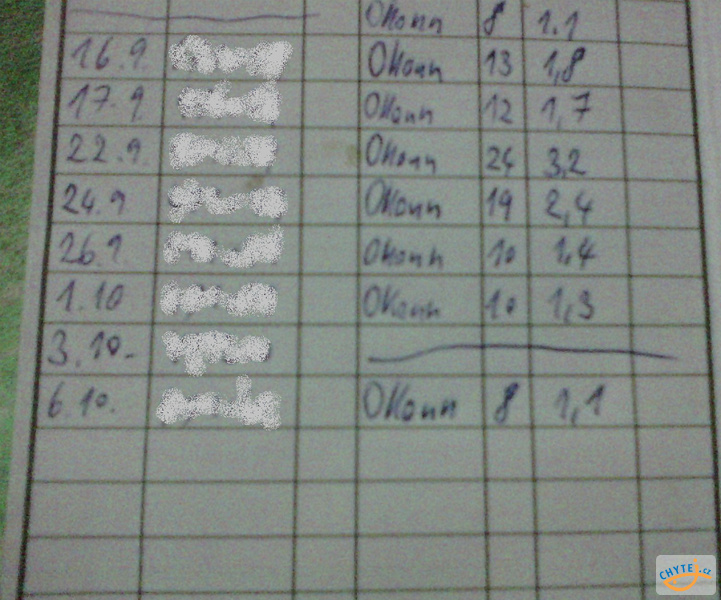 Okoun 8 1.1
16.9. Okoun 13 1,8
17.9 Okoun 12 1,7
22.9. Okoun 24 3,2
24.9 Okoun 19 2,4
26.9. Okoun 10 1,4
1.10 Okoun 10 1,3
3.10.
6.10. Okoun 8 1,1
CHYTEJ.cz